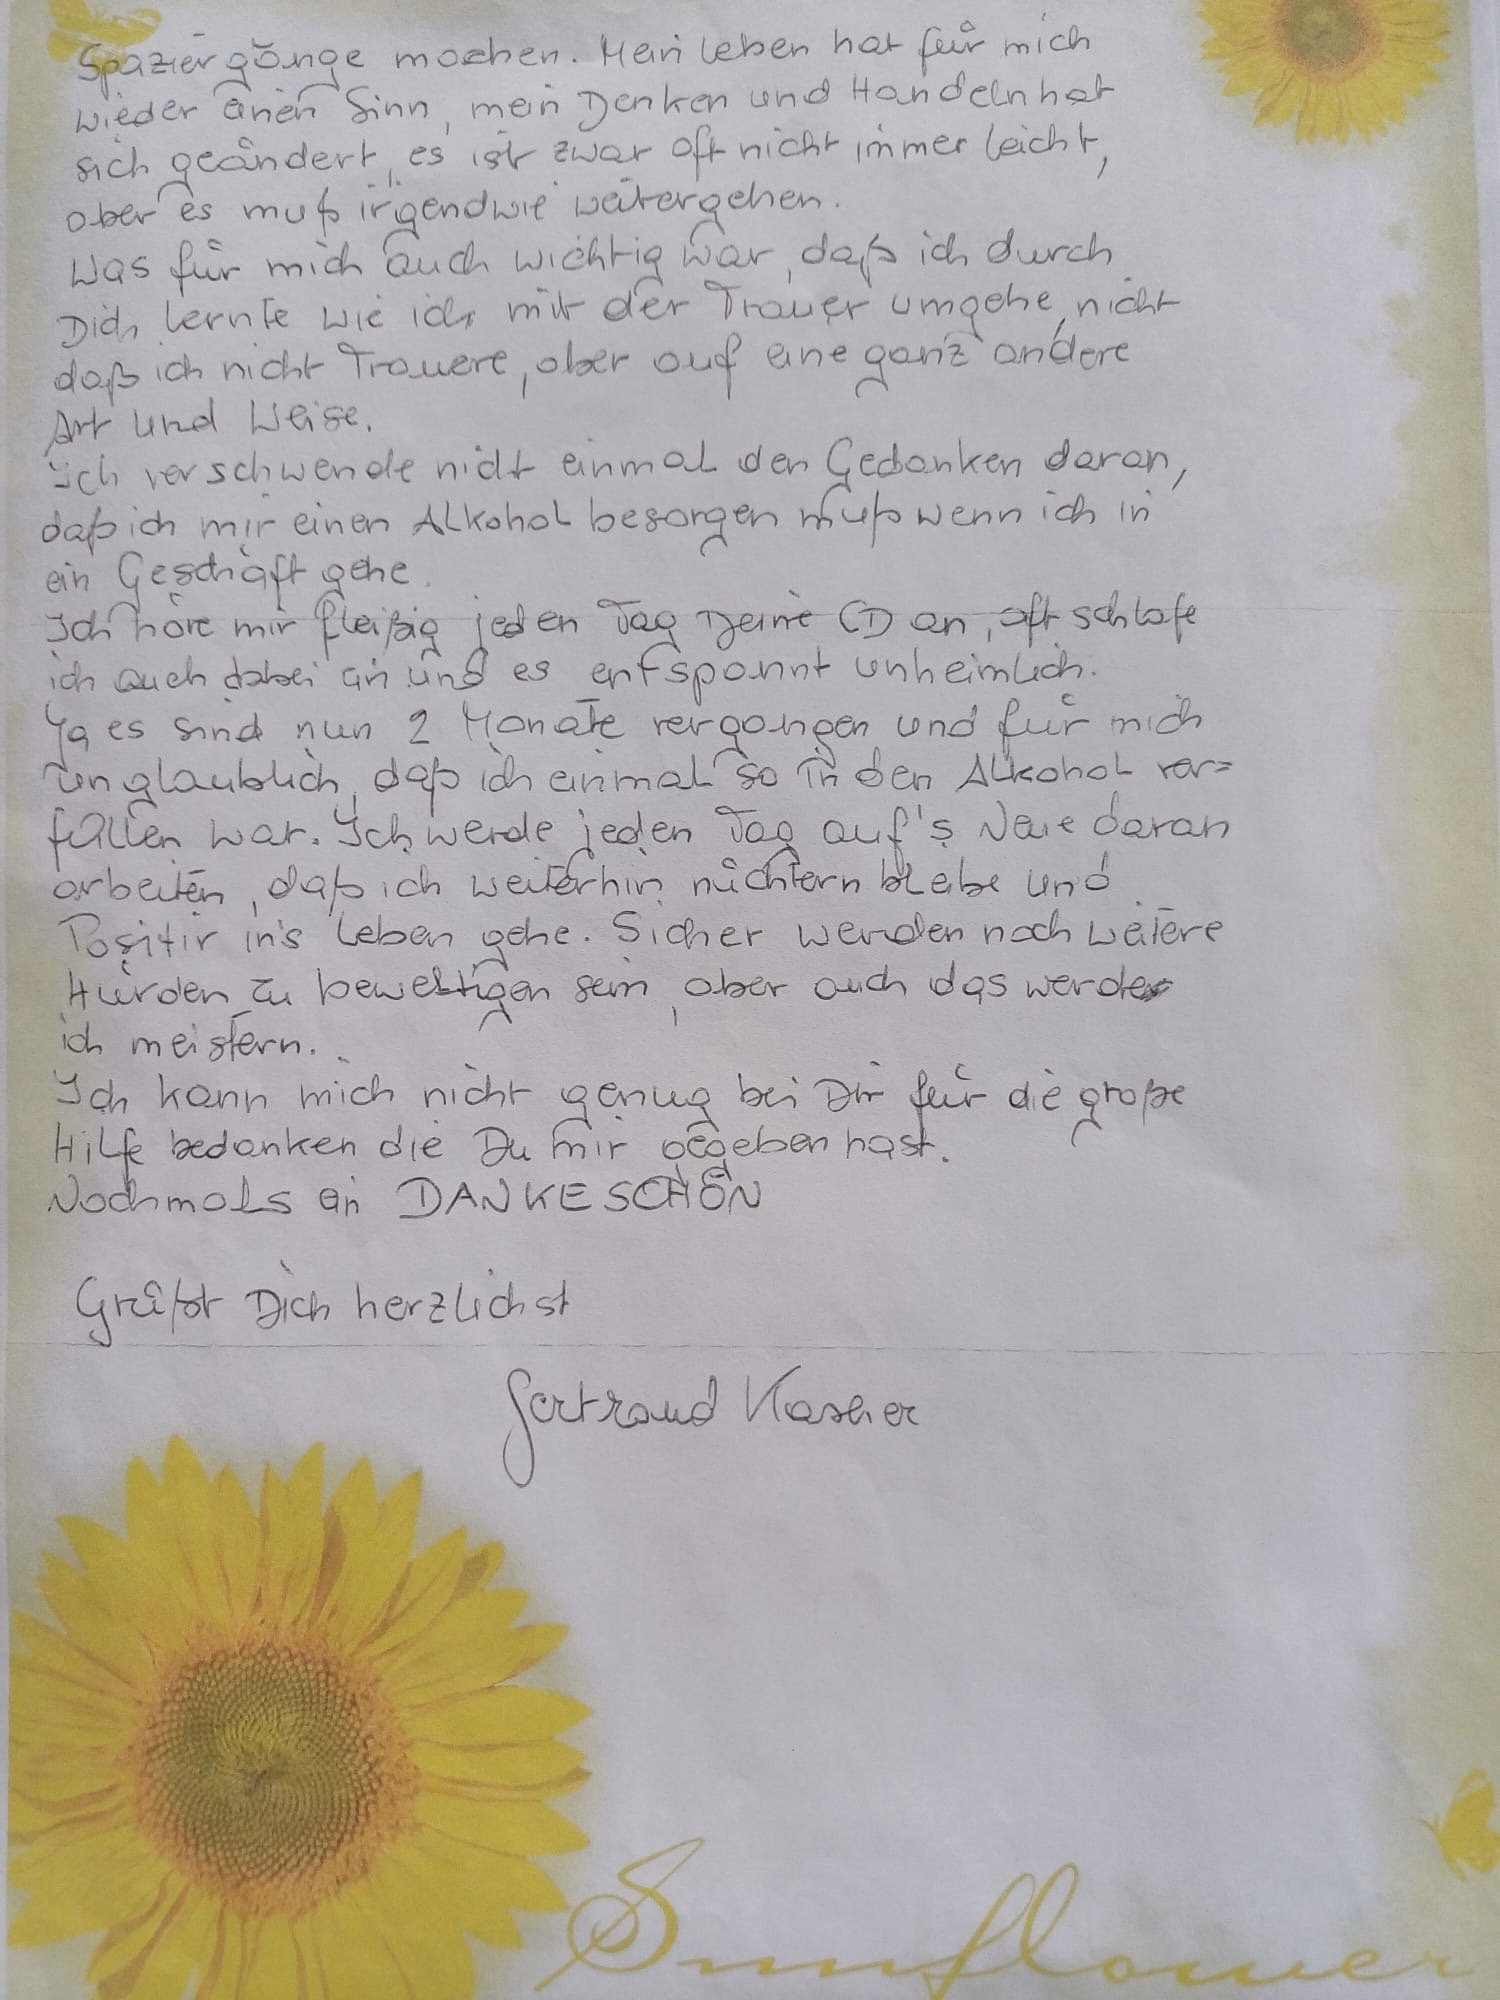 Spaziergänge machen. Mein Leben hat für mich
wieder einen Sinn, mein Denken und Handeln hat
sich geändert, es ist zwar oft nicht immer leicht,
aber es muß irgendwie weitergehen.
Was für mich auch wichtig war, daß ich durch
Dich lernte wie ich mit der Trauer umgehe, nicht
daß ich nicht Trauere, aber auf eine ganz andere
Art und Weise.
Ich verschwende nicht einmal den Gedanken daran,
daß ich mir einen Alkohol besorgen muß wenn ich in
ein Geschäft gehe.
Ich höre mir fleißig jeden Tag Deine CD an, oft schlafe
ich auch dabei ein und es entspannt unheimlich.
Ja es sind nun 2 Monate vergangen und für mich
unglaublich, daß ich einmal so in den Alkohol ver=
fallen war. Ich werde jeden Tag auf's Neue daran
arbeiten, daß ich weiterhin nüchtern bleibe und
Positiv in's Leben gehe. Sicher werden noch weitere
Hürden zu bewältigen sein, aber auch das werde
ich meistern.
Ich kann mich nicht genug bei Dir für die große
Hilfe bedanken die Du mir gegeben hast.
Nochmals ein DANKESCHÖN
Grüßt Dich herzlichst
Gertraud
Sunflower